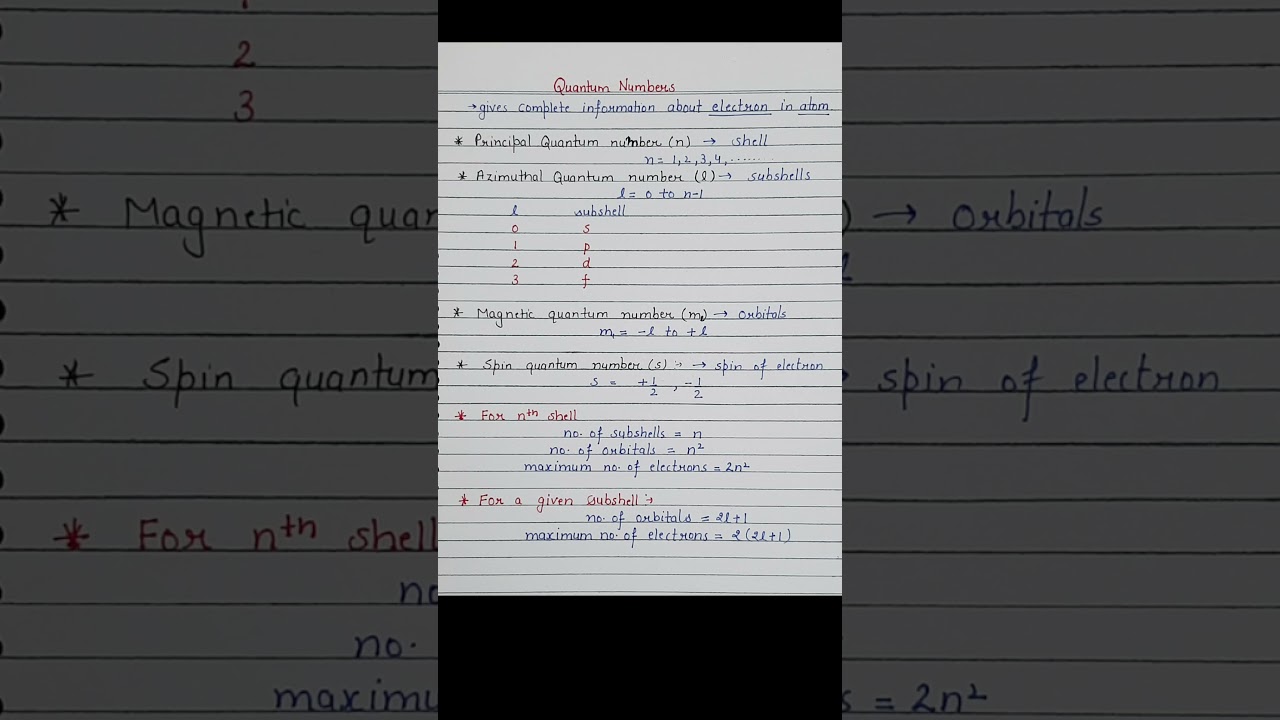 Quantum Numbers
→ gives complete information about electron in atom.
* Principal Quantum number (n) → shell
n = 1, 2, 3, 4, ........
* Azimuthal Quantum number (l) → subshells
l = 0 to n-1
l subshell
0 s
1 p
2 d
3 f
* Magnetic quantum number (mₗ) → orbitals
mₗ = -l to +l
* Spin quantum number (s) :- → spin of electron
s = +1/2 , -1/2
* For nᵗʰ shell
no. of subshells = n
no. of orbitals = n²
maximum no. of electrons = 2n²
* For a given subshell :-
no. of orbitals = 2l+1
maximum no. of electrons = 2(2l+1)
2
3
* Magnetic quan ) → orbitals
* Spin quantum → spin of electron
* For nᵗʰ shell
no
no.
maximu s = 2n²